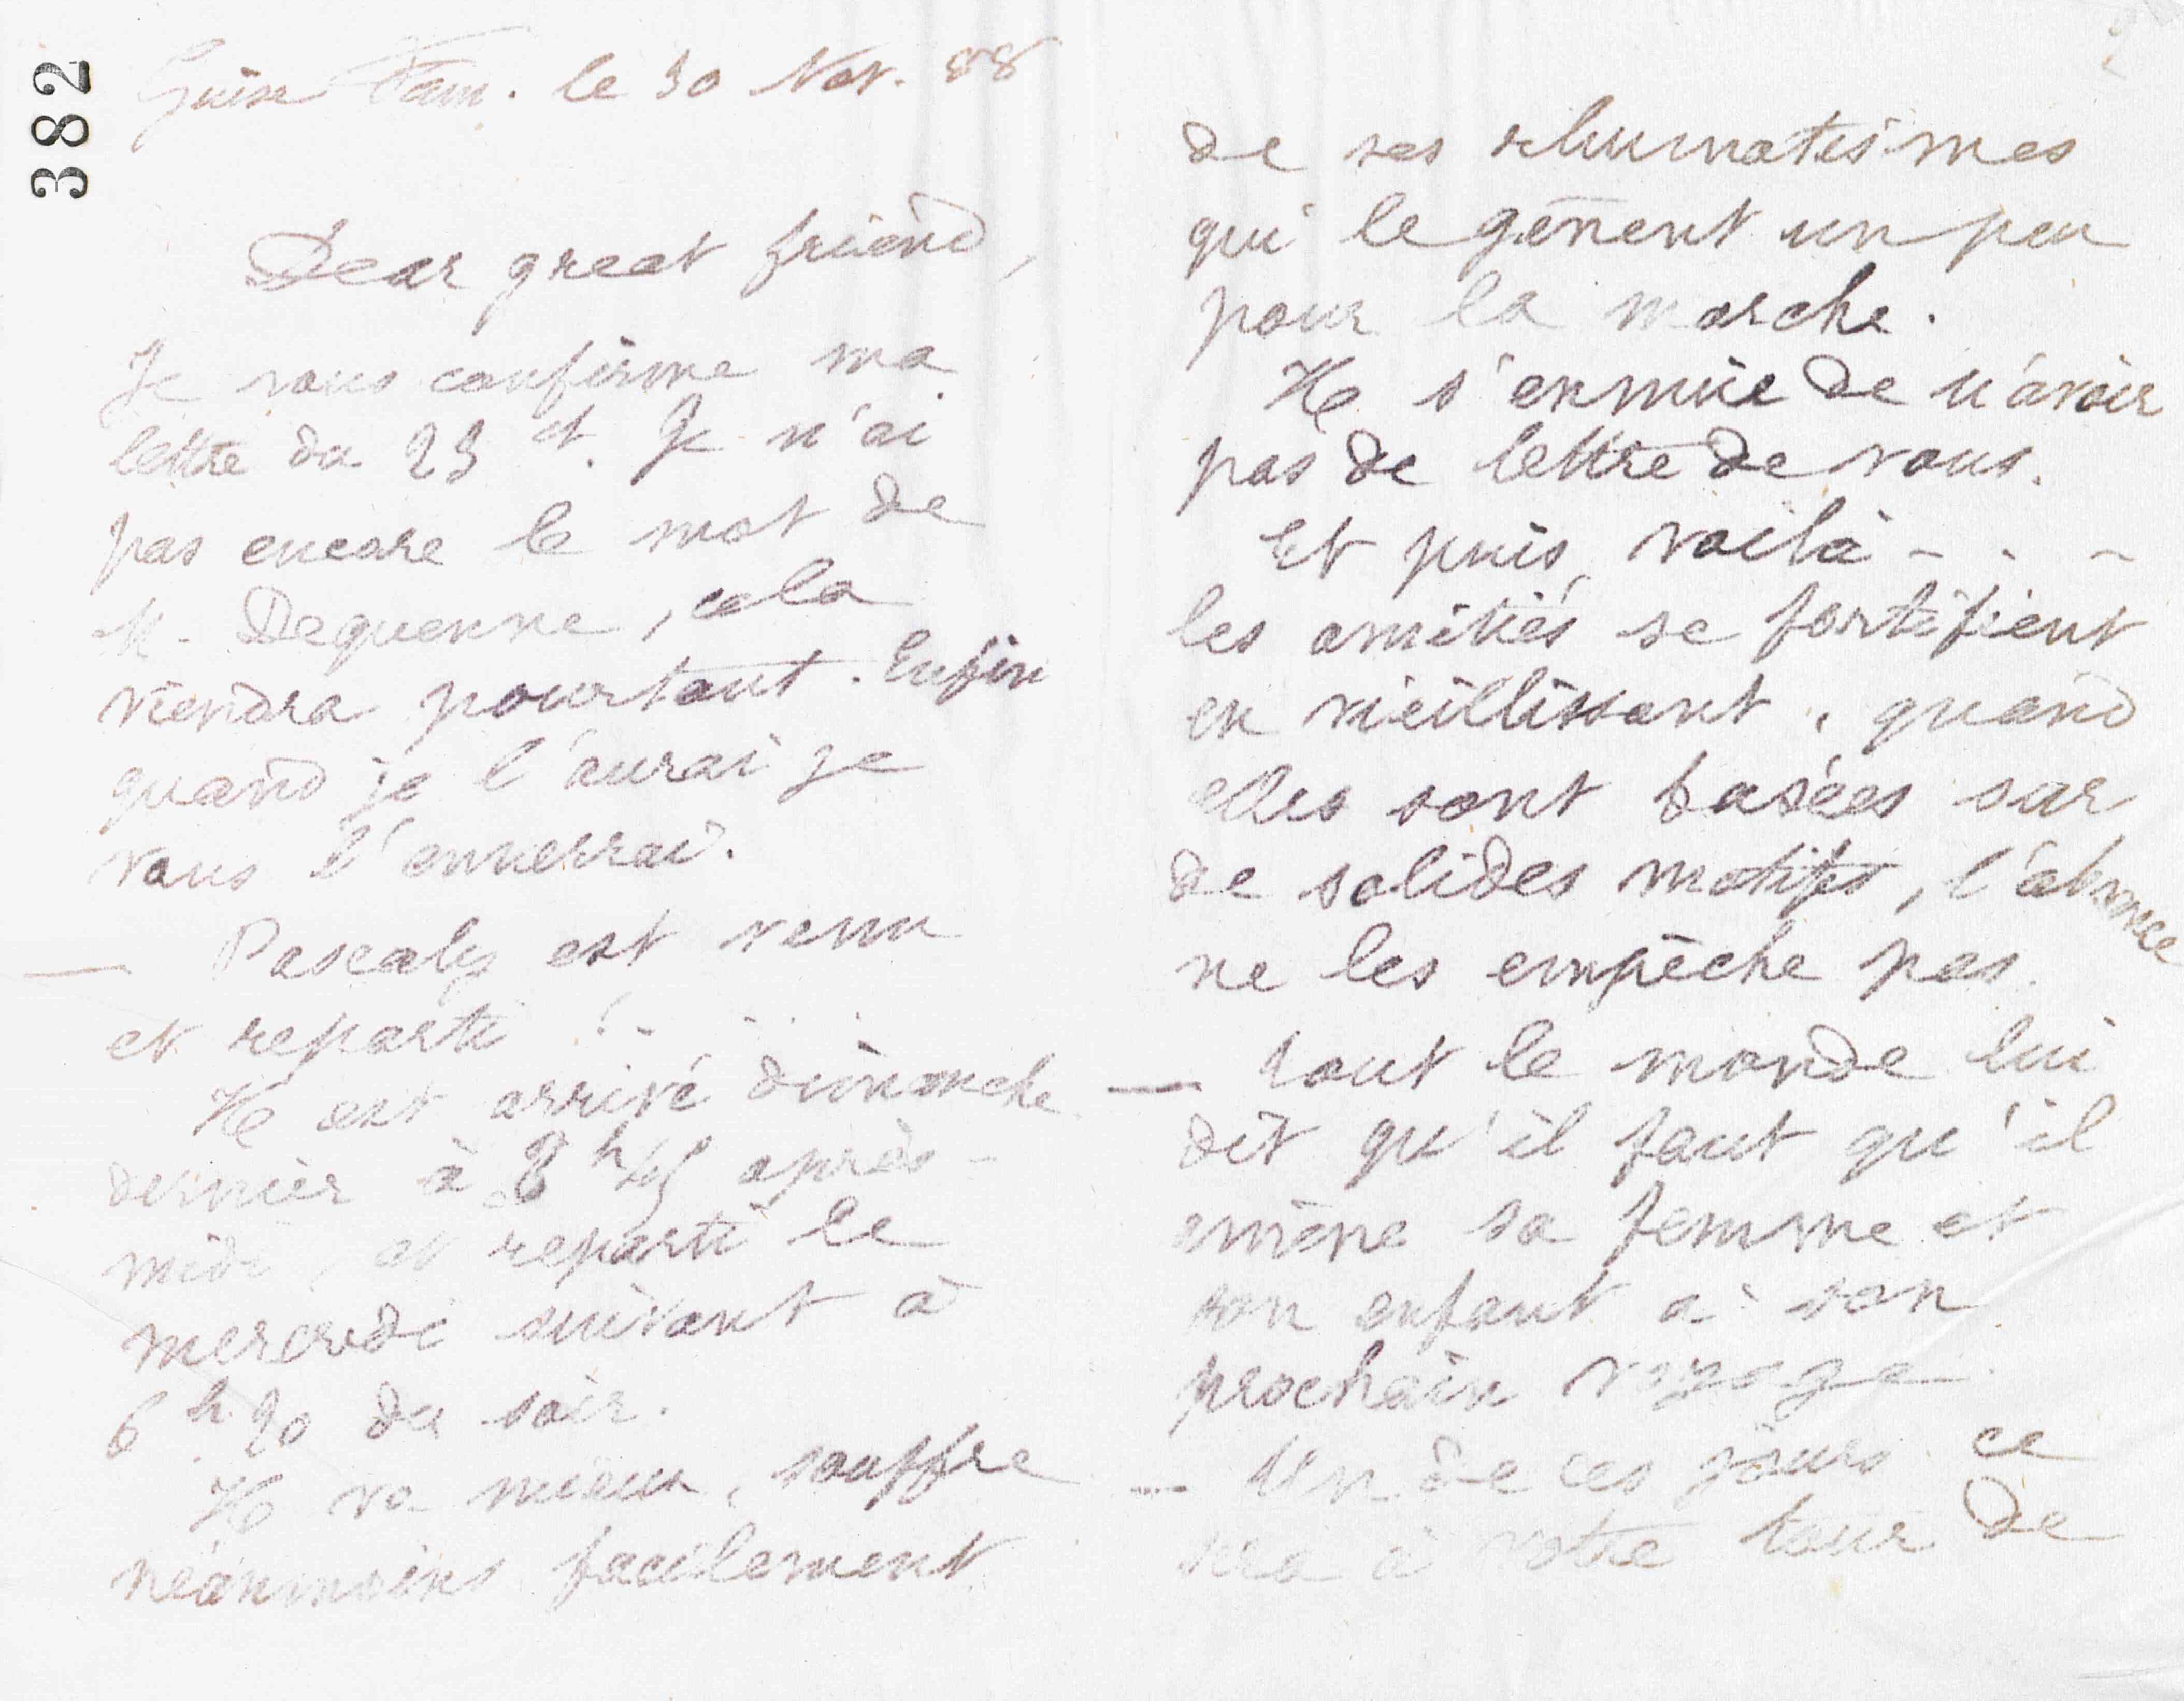 382
Guise Fam. le 30 Nov. 88
Dear great friend,
Je vous confirme ma
lettre du 23 ct. Je n'ai
pas encore le mot de
M. Dequenne, cela
viendra pourtant. Enfin
quand je l'aurai je
vous l'enverrai.
— Pascaly est venu
et reparti !..
Il est arrivé dimanche
dernier à 2h 45 après-
midi, et reparti le
mercredi suivant à
6h 20 du soir.
Il va mieux, souffre
néanmoins facilement
2
de ses rhumatismes
qui le gênent un peu
pour la marche.
Il s'ennuie de n'avoir
pas de lettre de vous.
Et puis, voilà - - -
les amitiés se fortifient
en vieillissant, quand
elles sont basées sur
de solides motifs, l'absence
ne les empêche pas.
— Tout le monde lui
dit qu'il faut qu'il
amène sa femme et
son enfant à son
prochain voyage.
— Un de ces jours ce
sera à votre tour de